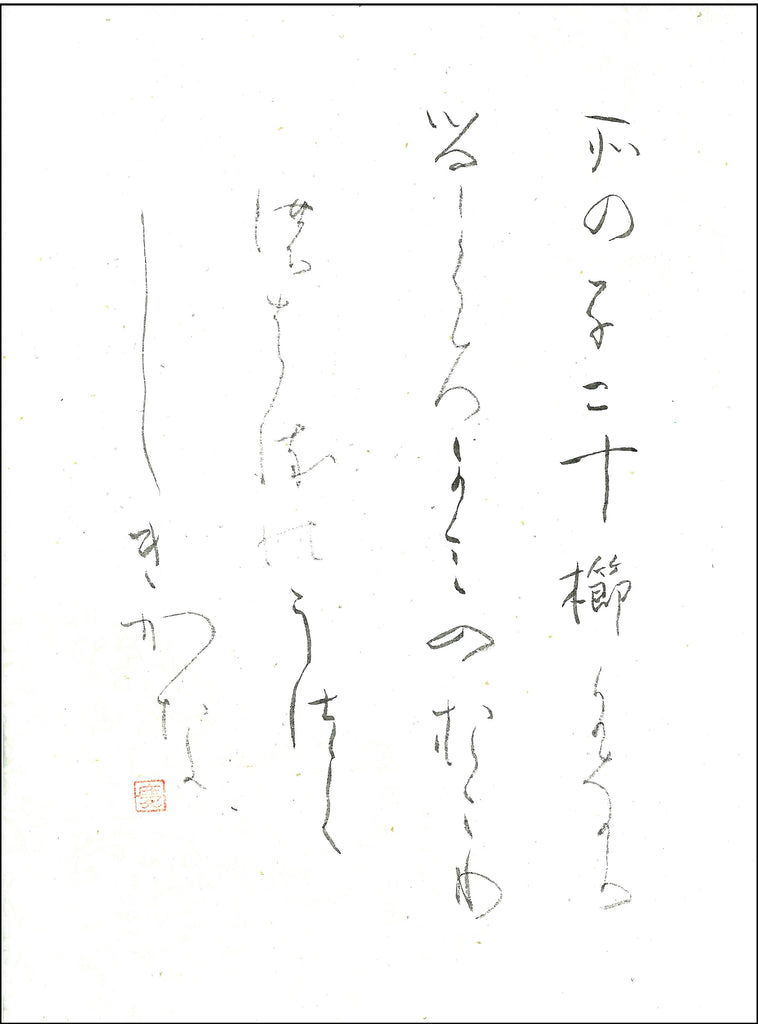 その子二十櫛にながる
るくろかみのおごり
のはるのうつく
しきかな